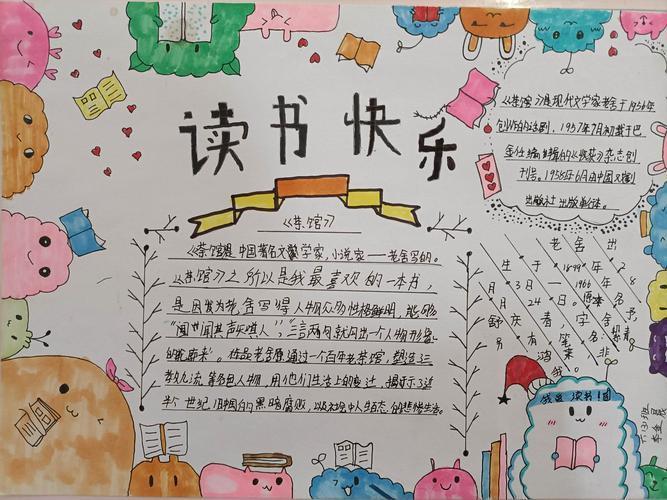 读书快乐
《茶馆》
《茶馆是中国著名文学家,小说家——老舍写的。
《茶馆》之所以是我最喜欢的一本书,
是因为老舍写得人物众多性格鲜明,能够
“闻其声
三言两句就勾出一个人物形象
作品老舍通过一个百年老茶馆,塑造三
教九流,等各色人物,用他们生活上的变迁,揭示了
半个世纪,旧中国的黑暗腐败,以及
《茶馆》是现代文学家老舍于1956年
创作的话剧,1957年7月初载于巴
金任编辑的《收获》杂志创
刊号。1958年6月由中国戏剧
出版社出版单行本。
老舍出
生于1899年2
月3日—1966年8
月24日。原名
舒庆春字舍予
另有笔名
鸿来非
我。
我爱读书!